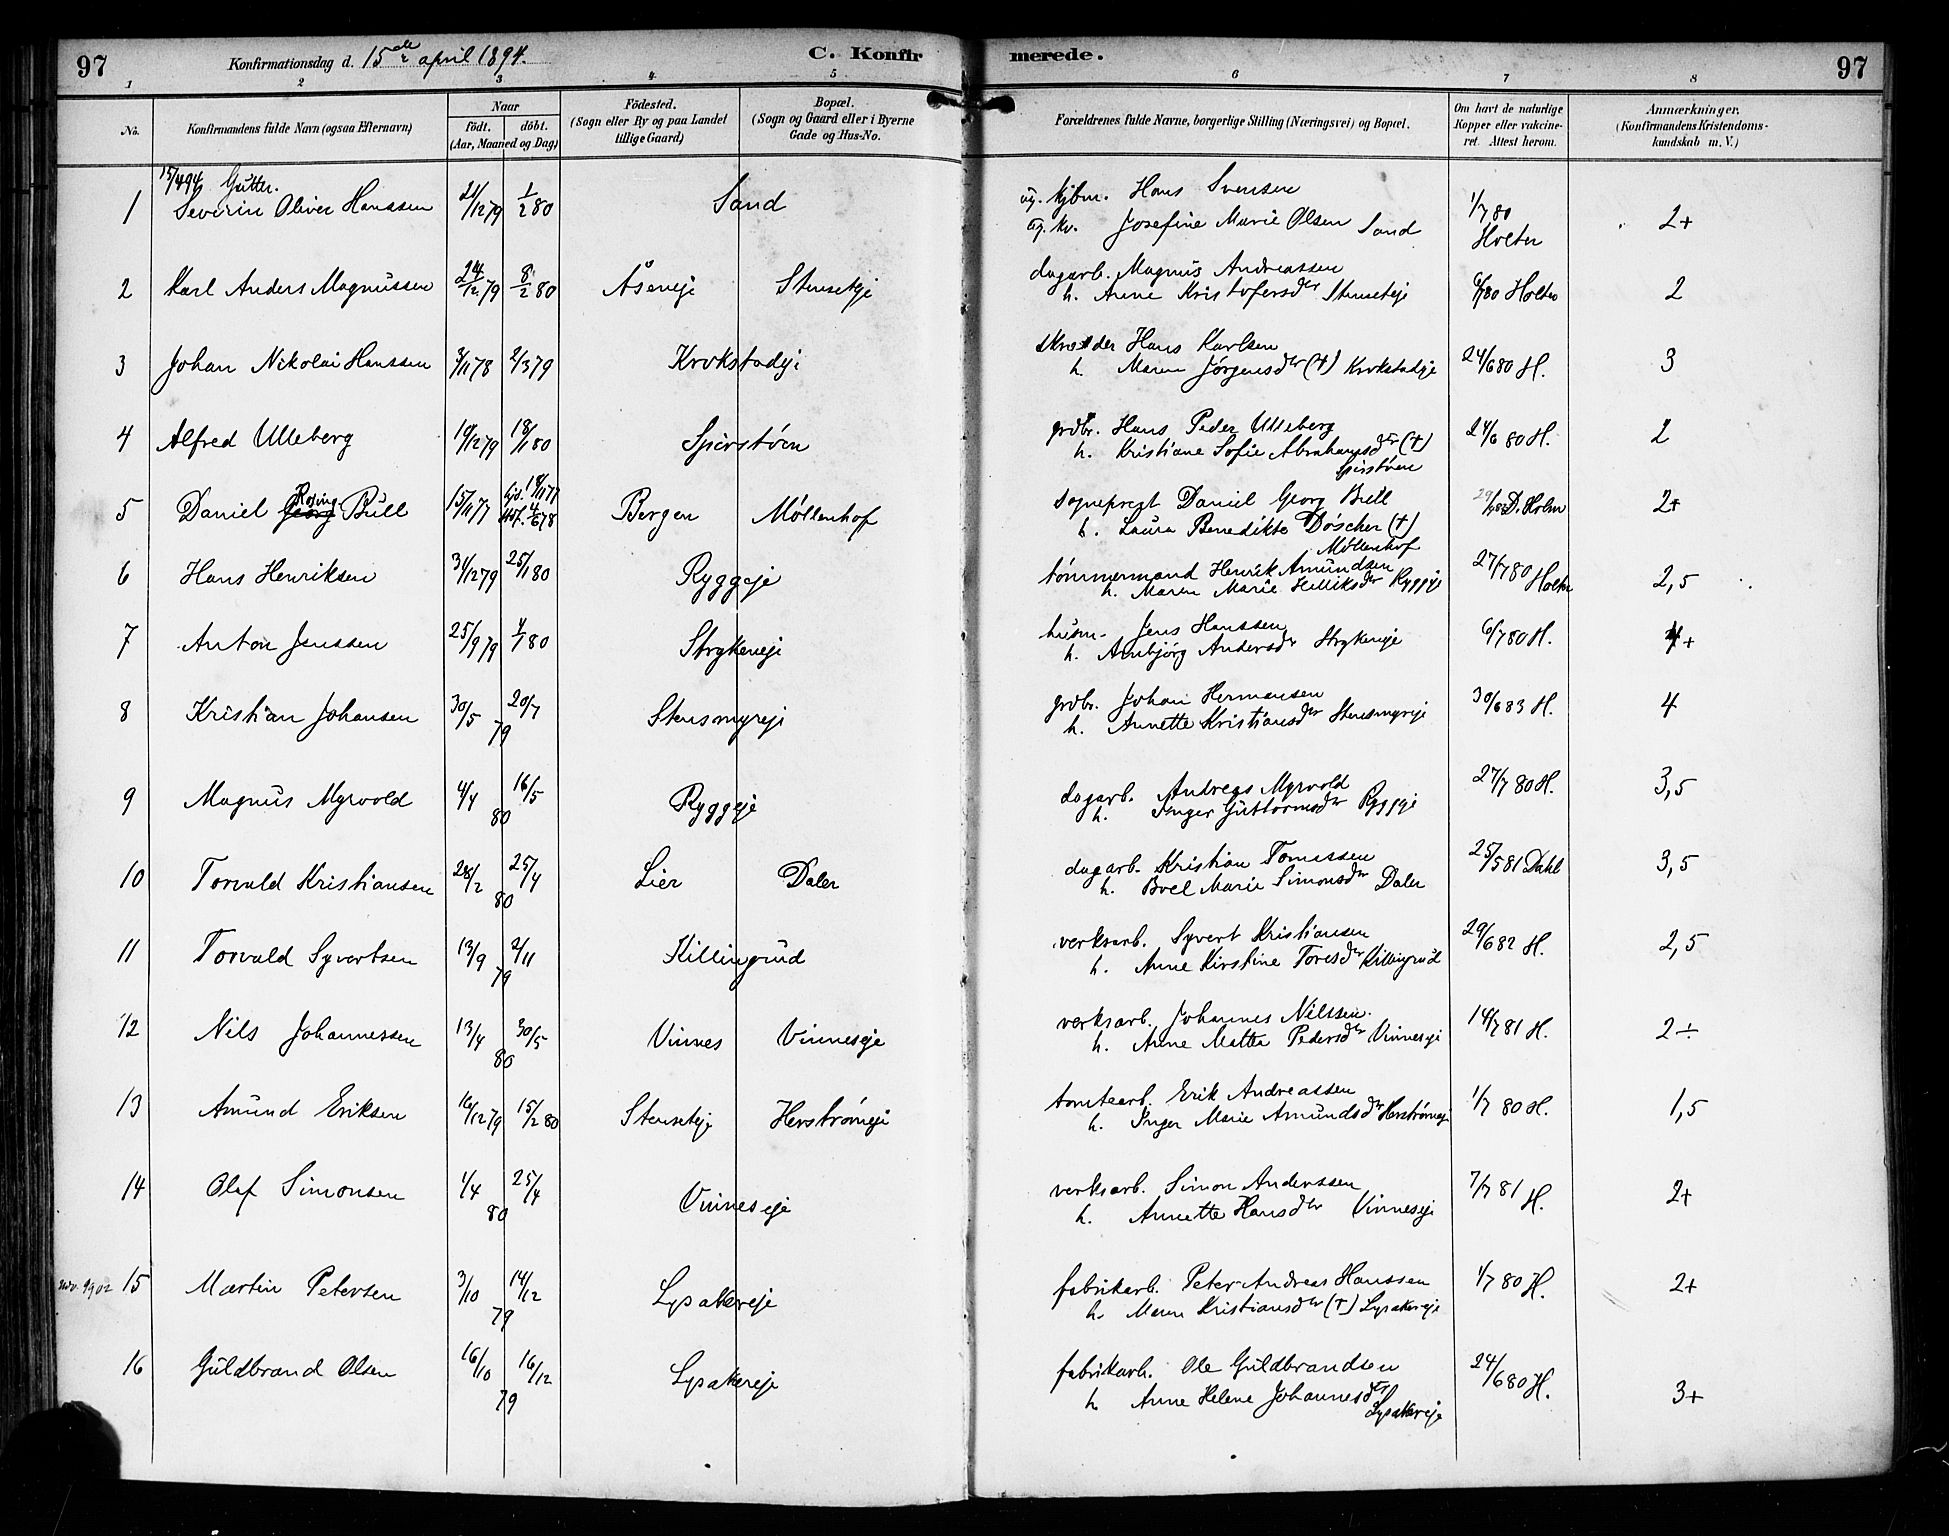 97 Konfirmationsdag d. 15de april 1894. C. Konfirmerede. 97
1 2 3 4 5 6 7 8
No. Konfirmandens fulde Navn (ogsaa Efternavn) Naar födt. döbt. (Aar, Maaned og Dag) Födested. (Sogn eller By og paa Landet tillige Gaard) Bopæl. (Sogn og Gaard eller i Byerne Gade og Hus-No. Forældrenes fulde Navne, borgerlige Stilling (Næringsvei) og Bopæl. Om havt de naturlige Kopper eller vakcineret. Attest herom. Anmærkninger. (Konfirmandens Kristendomskundskab m. V.)
15/4 94 Gutter.
1 Severin Oliver Hanssen 21/12 79 1/2 80 Sand ug. kjbm. Hans Svensen 1/7 80 2+
ug. kv. Josefine Marie Olsen Sand Holter
2 Karl Anders Magnussen 24/12 79 8/2 80 Åseneje Stenseteje dagarb. Magnus Andreassen 6/7 80 Holter 2
h. Anne Kristofersdtr Stenseteje
3 Johan Nikolai Hanssen 3/11 78 2/3 79 Krokstadeje skredder Hans Karlsen 24/6 80 H. 3
h. Maren Jørgensdtr (†) Krokstadeje
4 Alfred Ulleberg 19/12 79 18/1 80 Spirstøen grdbr. Hans Peder Ulleberg 24/6 80 H. 2
h. Kristiane Sofie Abrahamsdtr (†)
Spirstøen
5 Daniel Georg Rosing Bull 15/11 77 hjd. 18/11 77 stf. 4/6 78 Bergen Møllenhof sogneprest Daniel Georg Bull D. Holm 2+
h. Laura Benedikte Döscher (†)
Møllenhof
6 Hans Henriksen 31/12 79 25/1 80 Ryggeje tømmermand Henrik Amundsen 27/7 80 Holter 2,5
h. Maren Marie Helliksdtr Ryggeje
7 Anton Jenssen 25/9 79 4/1 80 Strykeneje husm. Jens Hanssen 6/7 80 H. 4+
h. Anbjørg Andersdtr Strykeneje
8 Kristian Johansen 30/5 20/7 79 Stensmyreje grdbr. Johan Hermansen 30/6 83 H. 4
h. Annette Kristiansdtr Stensmyreje
9 Magnus Myrvold 4/4 16/5 80 Ryggeje dagarb. Andreas Myrvold 27/7 80 H. 3,5
h. Inger Guttormsdtr Ryggeje
10 Torvald Kristiansen 28/2 25/4 80 Lier Daler dagarb. Kristian Tomassen 25/5 81 Dahl 3,5
h. Boel Marie Simonsdtr Daler
11 Torvald Syvertsen 13/9 2/11 79 Killingrud verksarb. Syvert Kristiansen 29/6 82 H. 2,5
h. Anne Kirstine Toresdtr Killingrud
12 Nils Johannessen 13/4 30/5 80 Vinnes Vinneseje verksarb. Johannes Nilssen. 14/7 81 H. 2÷
h. Anne Mattea Pedersdtr Vinneseje
13 Amund Eriksen 16/12 79 15/2 80 Stenseteje Herstrømeje tomtearb. Erik Andreassen 1/7 80 H. 1,5
h. Inger Marie Amundsdtr Herstrømeje
14 Olaf Simonsen 1/4 25/4 80 Vinneseje verksarb. Simon Anderssen 7/7 81 H. 2+
h. Annette Hansdtr Vinneseje
15 Martin Petersen 3/10 14/12 79 Lysakereje fabrikarb. Peter Andreas Hanssen 1/7 80 H. 2+
h. Maren Kristiansdtr (†) Lysakereje
16 Guldbrand Olsen 16/10 16/12 79 Lysakereje fabrikarb. Ole Guldbrandsen 24/6 80 H. 3+
h. Anne Helene Johannesdtr
Lysakereje